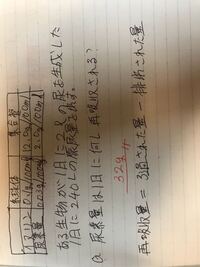 糸球体 集合管
イヌリン 0.1g/100mL 12.0g/100mL
尿素量 0.03g/100mL 2.0g/100mL
ある生物が1日に2Lの尿を生成した
1日に240Lの原尿量を
Q 尿素量は1日に何g再吸収される?
32g
再吸収量 = ろ過された量 − 排出された量